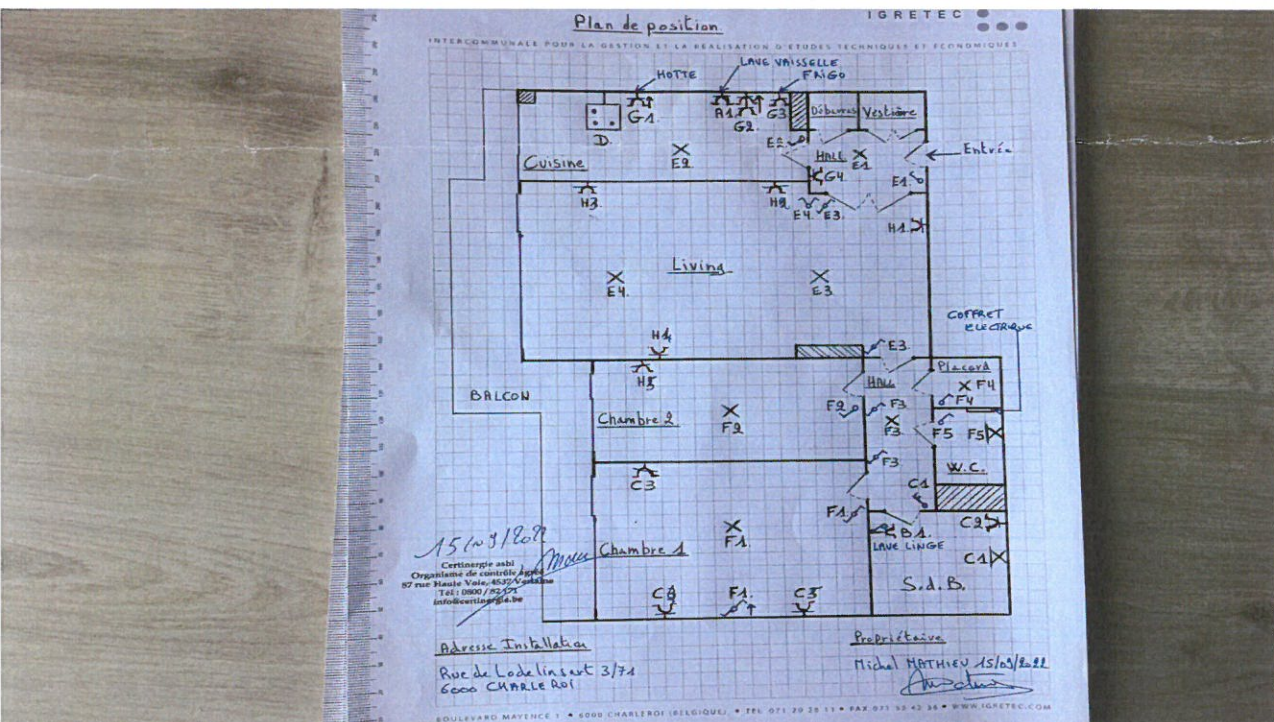 IGRETEC
Plan de position
INTERCOMMUNALE POUR LA GESTION ET LA RÉALISATION D'ÉTUDES TECHNIQUES ET ÉCONOMIQUES
LAVE VAISSELLE
HOTTE
FRIGO
Débarras
Vestiaire
D.
G1.
A1.
G2
G3
E2
HALL
E1
Entrée
Cuisine
E2
G4
E1.
H3.
H2
E4.
E3.
H1
Living
E4.
E3.
COFFRET
ELECTRIQUE
H4
E3.
H5
HALL
Placard
F4
BALCON
F2
F3
F4
Chambre 2
F2
F3
F5
F5
F3
W.C.
C3
C1
F1
C2
F1.
B1.
LAVE LINGE
C1
Chambre 1
S.d.B.
15/09/2022
Certinergie asbl
Organisme de contrôle agréé
87 rue Haute Voie, 4537 Verlaine
Tél : 0800 / 82 171
info@certinergie.be
F1.
C3
Adresse Installation
Propriétaire
Rue de Lodelinsart 3/71
6000 CHARLEROI
Michel MATHIEU 15/09/2022
BOULEVARD MAYENCE 1 • 6000 CHARLEROI (BELGIQUE) • TEL 071 20 28 11 • FAX 071 33 42 36 • WWW.IGRETEC.COM